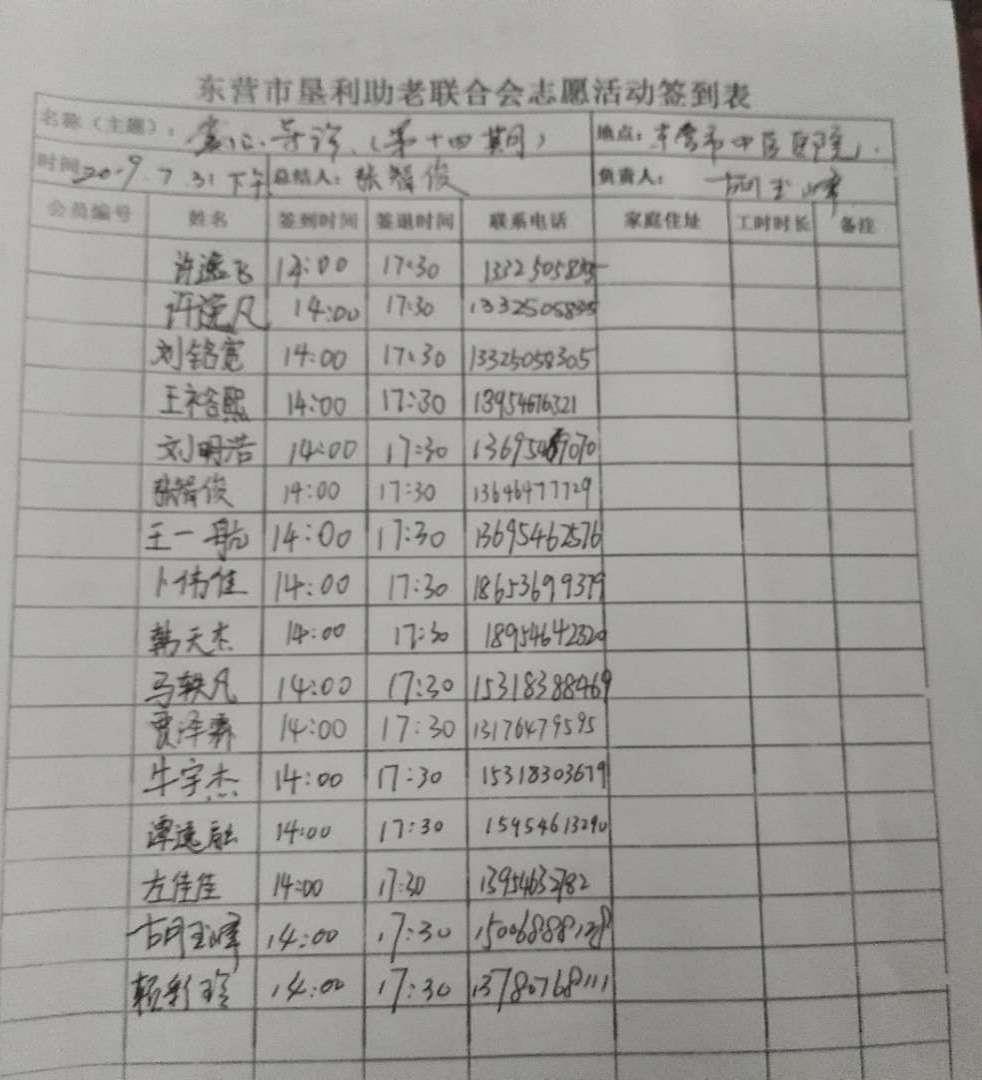 东营市垦利助老联合会志愿活动签到表
名称（主题）： 导诊（第十四期） 地点：东营市中医院
时间 2019.7.31下午 总结人：张智俊 负责人：胡玉峰
会员编号 姓名 签到时间 签退时间 联系电话 家庭住址 工时时长 备注
许逸飞 14:00 17:30
许逸凡 14:00 17:30 13325058305
刘铭宽 14:00 17:30 13325058305
王裕熙 14:00 17:30 13954676321
刘明浩 14:00 17:30
张智俊 14:00 17:30 13646477729
王一航 14:00 17:30 13695462576
卜伟佳 14:00 17:30 18653699379
韩天杰 14:00 17:30 18954642320
马轶凡 14:00 17:30 15318388469
贾泽霖 14:00 17:30 13176479595
牛宇杰 14:00 17:30 15318303679
谭逸融 14:00 17:30 15954613290
左佳佳 14:00 17:30 13954632782
胡玉峰 14:00 17:30 15006888128
14:00 17:30 13780768111